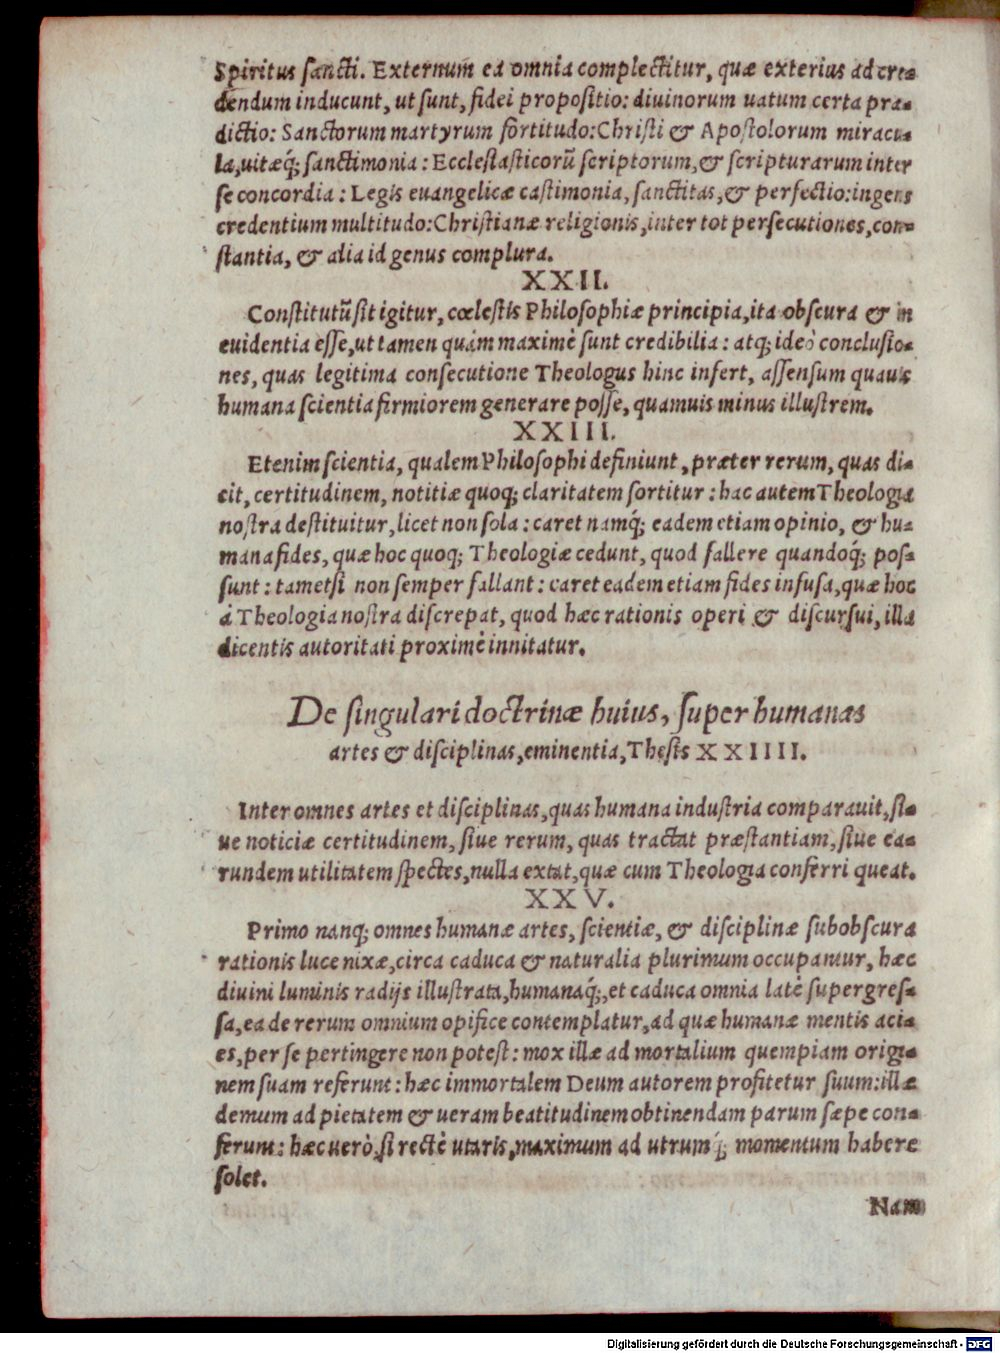 Spiritus sancti. Externum ea omnia complectitur, quæ exterius ad cre-
dendum inducunt, ut sunt, fidei propositio: diuinorum uatum certa præ-
dictio: Sanctorum martyrum fortitudo: Christi & Apostolorum miracu-
la, uitæq́; sanctimonia: Ecclesiasticorũ scriptorum, & scripturarum inter
se concordia: Legis euangelicæ castimonia, sanctitas, & perfectio: ingens
credentium multitudo: Christianæ religionis, inter tot persecutiones, con-
stantia, & alia id genus complura.
XXII.
Constitutũ sit igitur, cœlestis Philosophiæ principia, ita obscura & in
euidentia esse, ut tamen quàm maximè sunt credibilia: atq; ideò conclusio-
nes, quas legitima consecutione Theologus hinc infert, assensum quauis
humana scientia firmiorem generare posse, quamuis minus illustrem.
XXIII.
Etenim scientia, qualem Philosophi definiunt, præter rerum, quas di-
cit, certitudinem, notitiæ quoq; claritatem sortitur: hac autem Theologia
nostra destituitur, licet non sola: caret namq́; eadem etiam opinio, & hu-
mana fides, quæ hoc quoq; Theologiæ cedunt, quod fallere quandoq́; pos-
sunt: tametsi non semper fallant: caret eadem etiam fides infusa, quæ hoc
à Theologia nostra discrepat, quod hæc rationis operi & discursui, illa
dicentis autoritati proximè innitatur.
De singulari doctrinæ huius, super humanas
artes & disciplinas, eminentia, Thesis XXIIII.
Inter omnes artes et disciplinas, quas humana industria comparauit, si-
ue noticiæ certitudinem, siue rerum, quas tractat præstantiam, siue ea-
rundem utilitatem spectes, nulla extat, quæ cum Theologia conferri queat.
XXV.
Primo nanq; omnes humanæ artes, scientiæ, & disciplinæ subobscura
rationis luce nixæ, circa caduca & naturalia plurimum occupantur, hæc
diuini luminis radijs illustrata, humanaq́;, et caduca omnia latè supergres-
sa, ea de rerum omnium opifice contemplatur, ad quæ humanæ mentis aci-
es, per se pertingere non potest: mox illæ ad mortalium quempiam origi-
nem suam referunt: hæc immortalem Deum autorem profitetur suum: illæ
demum ad pietatem & ueram beatitudinem obtinendam parum sæpe con-
ferunt: hæc uerò, si rectè utaris, maximum ad utrumq́; momentum habere
solet.
Nam
Digitalisierung gefördert durch die Deutsche Forschungsgemeinschaft - DFG